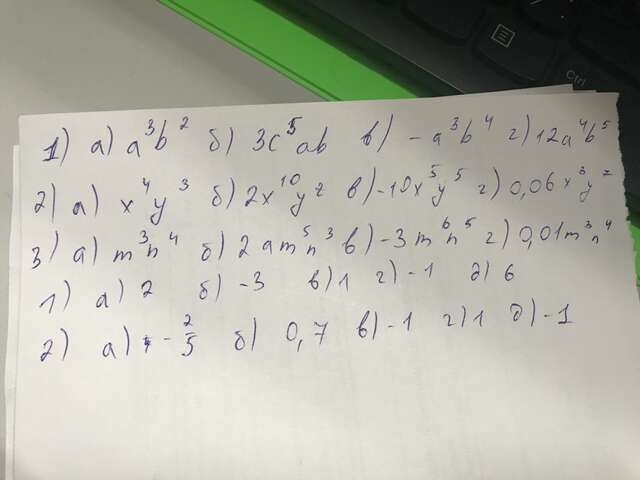 Ctrl
1) а) a³b² б) 3c⁵ab в) -a³b⁴ г) 12a⁴b⁵
2) а) x⁴y³ б) 2x¹⁰y² в) -10x⁵y⁵ г) 0,06x³y²
3) а) m³n⁴ б) 2am⁵n³ в) -3m⁶n⁵ г) 0,01m³n⁴
1) а) 2 б) -3 в) 1 г) -1 д) 6
2) а) -2/5 б) 0,7 в) -1 г) 1 д) -1